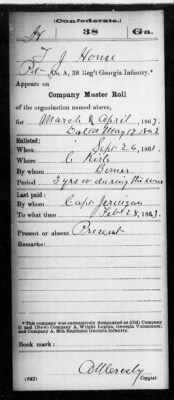 (Confederate.)
H 38 Ga.
T J House
Pvt Co. A, 38 Reg't Georgia Infantry.*
Appears on
Company Muster Roll
of the organization named above,
for March & April, 1863.
Dated May 17, 1863
Enlisted:
When Sept 26, 1861.
Where C Kirk
By whom
Period 3 yrs or during the war
Last paid:
By whom Capt Jernigan
To what time Feb 28, 1863.
Present or absent Present
Remarks:
*This company was successively designated as (Old) Company
C and (New) Company A, Wright Legion, Georgia Volunteers,
and Company A, 38th Regiment Georgia Infantry.
Book mark:
(642) Copyist.